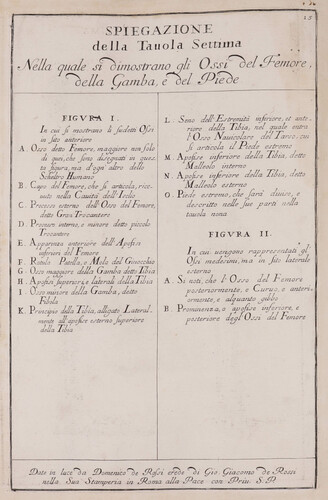 SPIEGAZIONE
della Tauola Settima
Nella quale si dimostrano gli Ossi del Femore,
della Gamba, e del Piede
25
FIGVRA I.
In cui si mostrano li sudetti Ossi
in sito anteriore
A. Osso detto Femore, maggiore non solo
di quei, che sono disegnati in questa
figura, mà d'ogn'altro dello
Scheltro Humano
B. Capo del Femore, che si articola, rice
uuto nella Cauità dell'Ischi
C. Processo esterno dell'Osso del Femore,
detto Gran Trocantere
D. Processo interno, e minore detto piccolo
Trocantere
E. Apparenza anteriore dell'Apofise
inferiori del Femore
F. Rotula Patella, e Mola del Ginocchio
G. Osso maggiore della Gamba detto Tibia
H. Apofisi superiori, e laterali della Tibia
I. Osso minore della Gamba, detto
Fibola
K. Principio della Tibia, alligato Lateral
mente all'apofise esterno superiore
della Tibia
L. Seno dell'Estremità inferiore, et ante
riore della Tibia, nel quale entra
l'Osso Nauicolare del Tarso, cui
si articola il Piede estremo
M. Apofise inferiore della Tibia, detto
Malleolo interno
N. Apofise inferiore della Tibia, detto
Malleolo esterno
O. Piede estremo, che sarà diuiso, e
descritto nelle sue parti nella
tauola nona
FIGVRA II.
In cui uengono rappresentati gl'
Ossi medesimi, ma in sito laterale
esterno
A. Si noti, che l'Osso del Femore
posteriormente, è Curuo, e anteri-
ormente, è alquanto gibbo
B. Prominenza, o apofise inferiore, e
posteriore degl'Ossi del Femore
Dato in luce da Domenico de Rossi erede di Gio. Giacomo de Rossi
nella Sua Stamperia in Roma alla Pace con Priu. S. P.